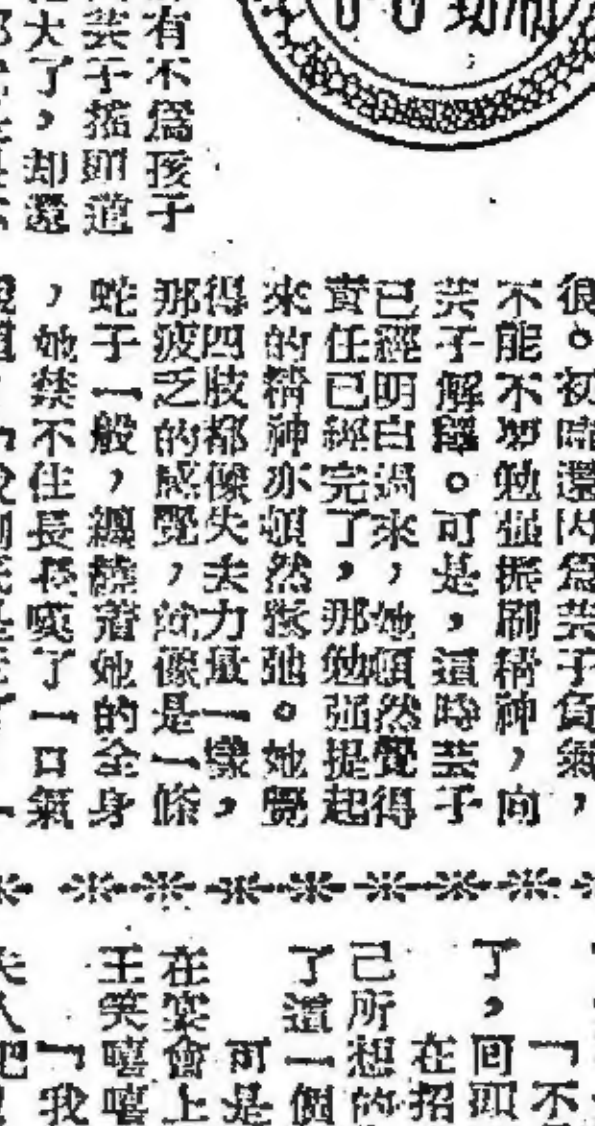 有不爲孩子
芸子搖頭道
大了，却還
很。初時還因爲芸子負氣，
不能不勉强振刷精神，向
芸子解釋。可是，這時芸子
已經明白過來，她頓然覺得
責任已經完了，那勉强提起
來的精神亦頓然鬆弛。她覺
得四肢都像失去力量一樣，
那疲乏的感覺，就像是一條
蛇子一般，纏繞着她的全身
，她禁不住長長嘆了一口氣
「不
了，回頭
在招
己所想的
了道一個
可是
在宴會上
王笑嘻嘻
「我